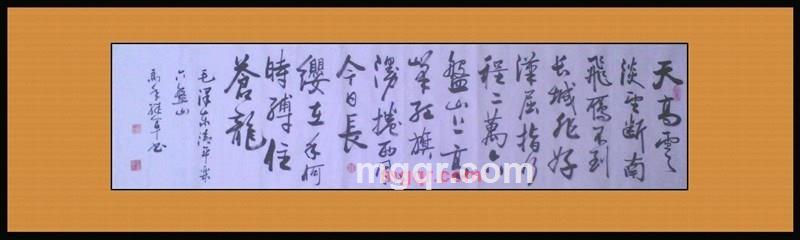 天高雲
淡望断南
飛雁不到
长城非好
漢屈指行
程二萬六
盤山上高
峯红旗
漫捲西風
今日長
纓在手何
時縛住
蒼龍
毛泽东清平乐
六盤山
mgqr.com